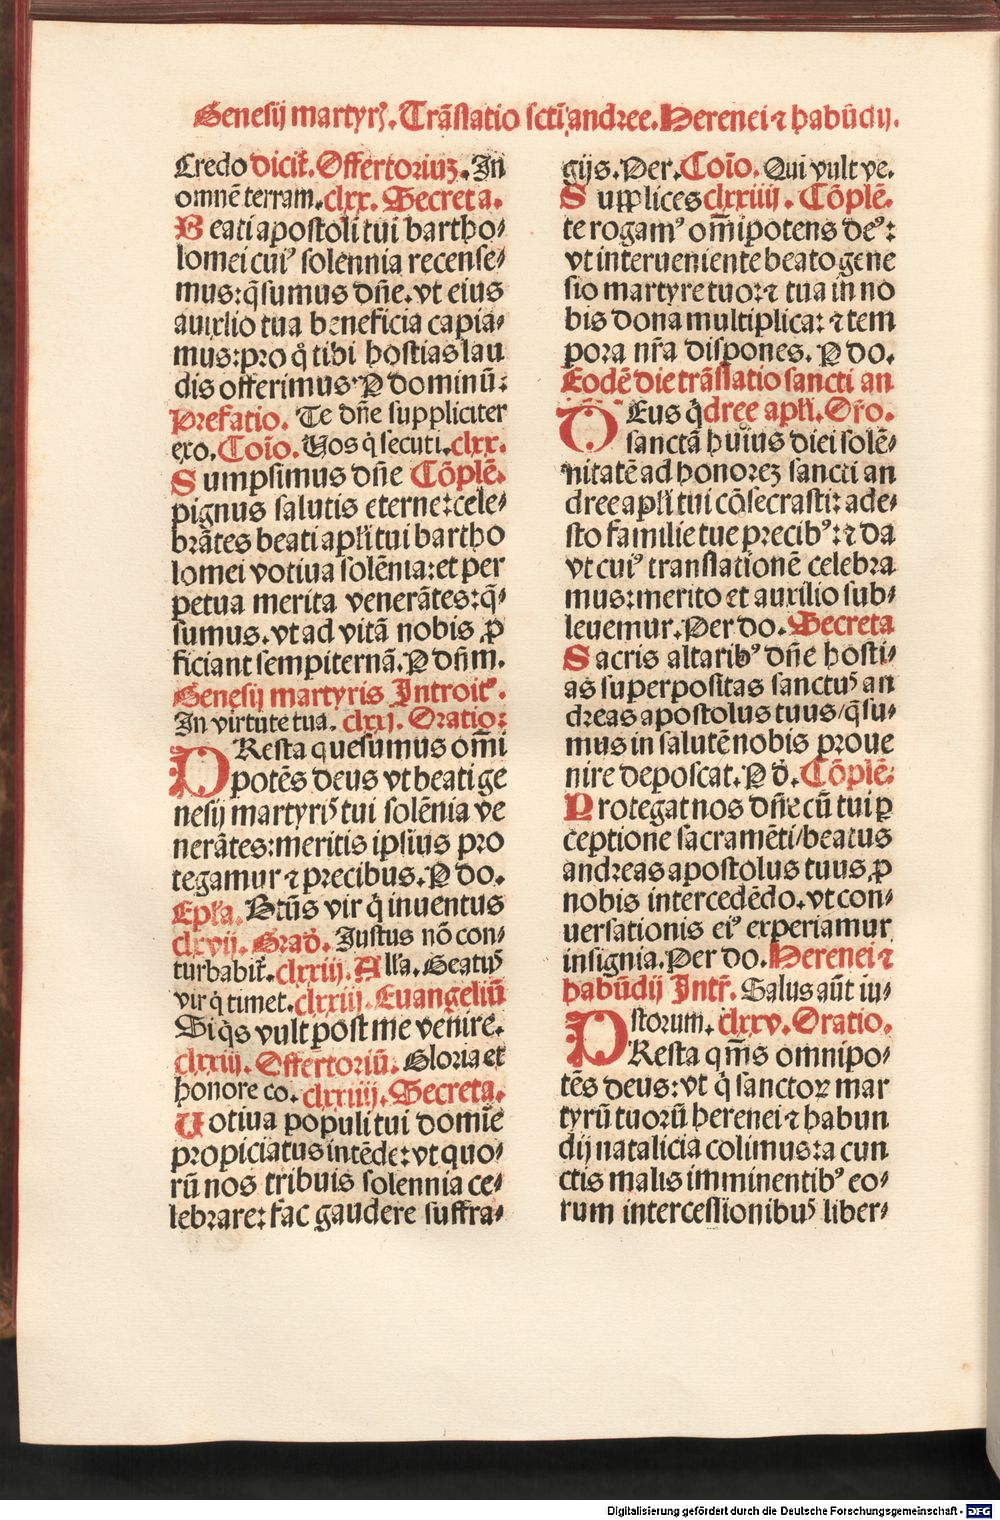 Genesij martyrꝭ. Trãslatio scti andree. Herenei ⁊ habũdij.
Credo dicit̃. Offertoriuȝ. In
omnẽ terram. clxx. Secreta.
Beati apostoli tui bartho⸗
lomei cuiꝰ solennia recense⸗
mus: q̃sumus dñe. vt eius
auxilio tua beneficia capia⸗
mus: pro q̃ tibi hostias lau
dis offerimus. P dominũ:
Prefatio. Te dñe suppliciter
exo. Coĩo. Uos q̃ secuti. clxx.
Sumpsimus dñe Cõplẽ.
pignus salutis eterne: cele⸗
brãtes beati apl̃i tui bartho
lomei votiua solẽnia: et per
petua merita venerãtes: q̃⸗
sumus. vt ad vitã nobis ꝓ
ficiant sempiternã. P dñm.
Genesij martyris Introitꝰ.
In virtute tua. clxxj. Oratio:
PResta quesumus om̃i
potẽs deus vt beati ge
nesij martyrꝭ tui solẽnia ve
nerãtes: meritis ipsius pro
tegamur ⁊ precibus. P do.
Epl̃a. Btũs vir q̃ inuentus
clxvij. Grad̃. Justus nõ con⸗
turbabit̃. clxxiij. All̃a. Beatꝰ
vir q̃ timet. clxxiij. Euangeliũ
Si q̃s vult post me venire.
clxxiij. Offertoriũ. Gloria et
honore co. clxxiiij. Secreta.
Uotiua populi tui domĩe
propiciatus intẽde: vt quo⸗
rũ nos tribuis solennia ce⸗
lebrare: fac gaudere suffra⸗
gijs. Per. Coĩo. Qui vult ve.
Supplices clxxiiij. Cõplẽ.
te rogamꝰ om̃ipotens deꝰ:
vt interueniente beato gene
sio martyre tuo: ⁊ tua in no
bis dona multiplica: ⁊ tem
pora nr̃a dispones. P do.
Eodẽ die trãslatio sancti an
DEus q̃ dree apl̃i. Oro.
sanctã huius diei solẽ⸗
nitatẽ ad honoreȝ sancti an
dree apl̃i tui cõsecrasti: ade⸗
sto familie tue precibꝰ: ⁊ da
vt cuiꝰ translationẽ celebra
mus: merito et auxilio sub⸗
leuemur. Per do. Secreta
Sacris altaribꝰ dñe hosti⸗
as superpositas sanctus an
dreas apostolus tuus / q̃su⸗
mus in salutẽ nobis proue
nire deposcat. P d̃. Cõplẽ.
Protegat nos dñe cũ tui ꝑ
ceptione sacramẽti / beatus
andreas apostolus tuus ꝓ
nobis intercedẽdo. vt con⸗
uersationis eiꝰ experiamur
insignia. Per do. Herenei ⁊
habũdij Intr̃. Salus aũt iu⸗
storum. clxxv. Oratio.
PResta qm̃s omnipo⸗
tẽs deus: vt q̃ sanctoꝝ mar
tyrũ tuorũ herenei ⁊ habun
dij natalicia colimus: a cun
ctis malis imminentibꝰ eo⸗
rum intercessionibus liber⸗
Digitalisierung gefördert durch die Deutsche Forschungsgemeinschaft - DFG